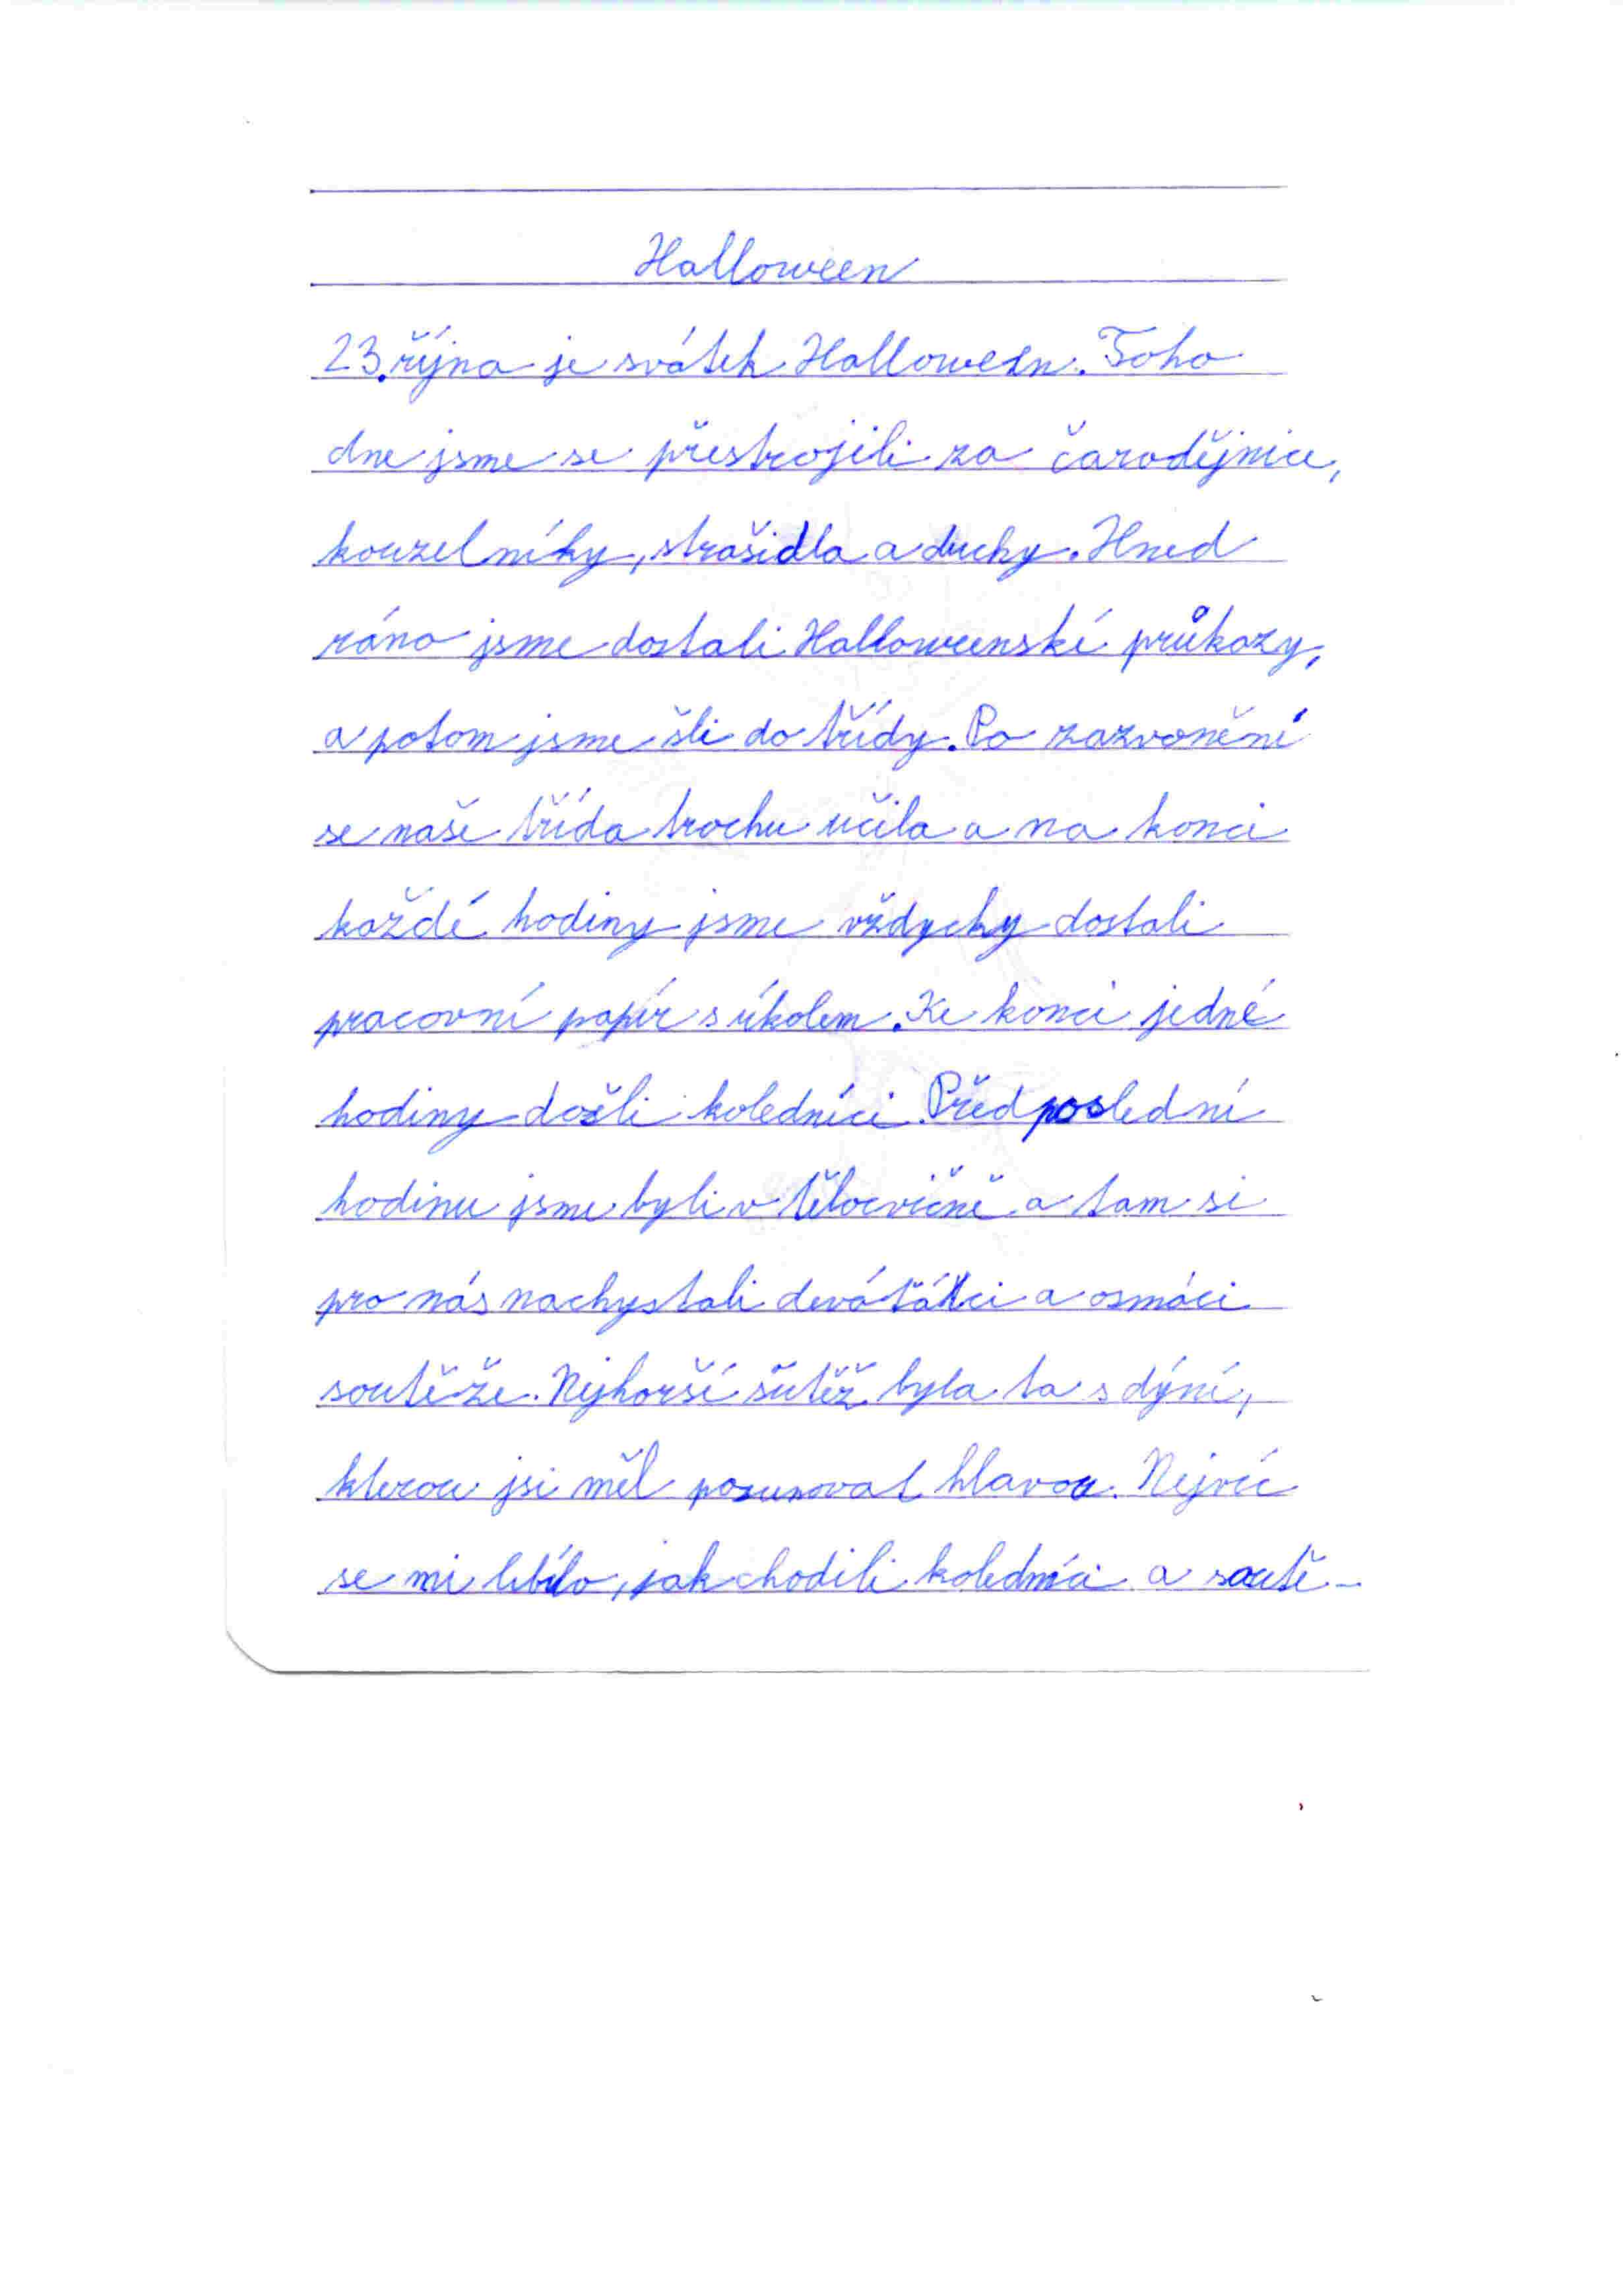 Halloween
23. října je svátek Halloween. Toho
dne jsme se přestrojili za čarodějnice,
kouzelníky, strašidla a duchy. Hned
ráno jsme dostali Halloweenské průkazy,
a potom jsme šli do třídy. Po zazvonění
se naše třída trochu učila a na konci
každé hodiny jsme vždycky dostali
pracovní papír s úkolem. Ke konci jedné
hodiny došli koledníci. Předposlední
hodinu jsme byli v tělocvičně a tam si
pro nás nachystali deváťáci a osmáci
soutěže. Nejhorší sutěž byla ta s dýní,
kterou jsi měl posunovat hlavou. Nejvíc
se mi líbilo, jak chodili koledníci a soutě-